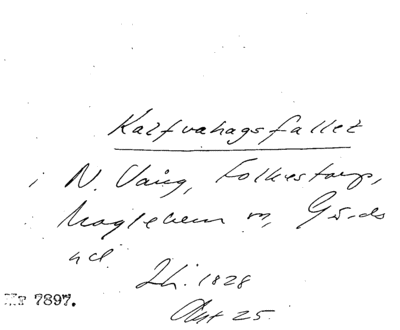 Kalfvahagsfallet
i N. Vång, Folkestorp,
Maglehem m, Gärds
hd.
Lh. 1828
Akt 25
Nr 7897.